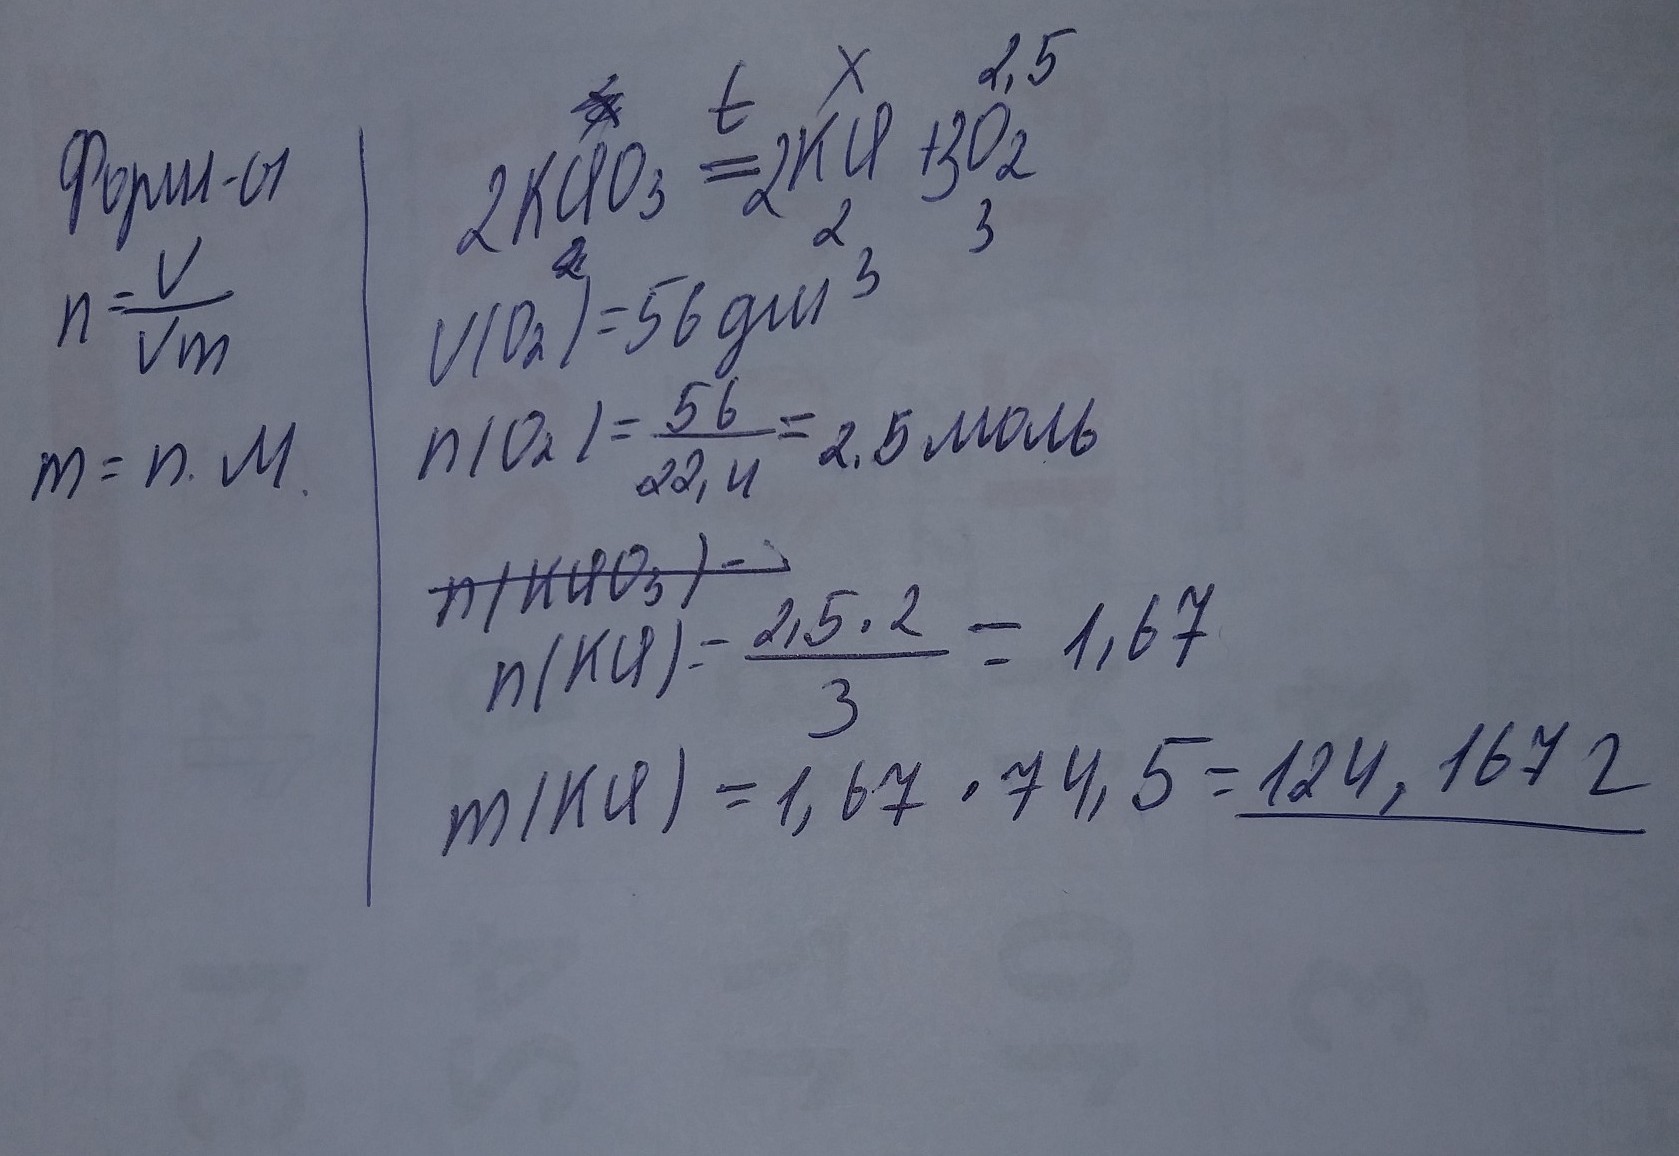 Форм-ы
n = V / Vm
m = n. M.
t X 2,5
2KClO3 = 2KCl + 3O2
2 2 3
V(O2) = 56 дм3
n(O2) = 56 / 22,4 = 2.5 моль
n(KClO3) =
n(KCl) = 2,5 . 2 / 3 = 1,67
m(KCl) = 1,67 . 74,5 = 124,167 г